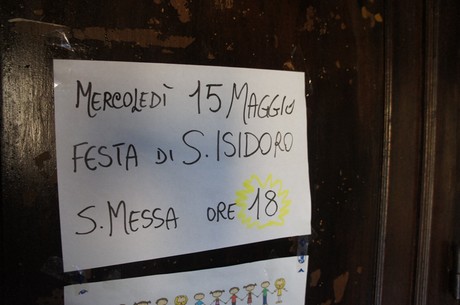 MERCOLEDÌ 15 MAGGIO
FESTA DI S. ISIDORO
S. MESSA ORE 18